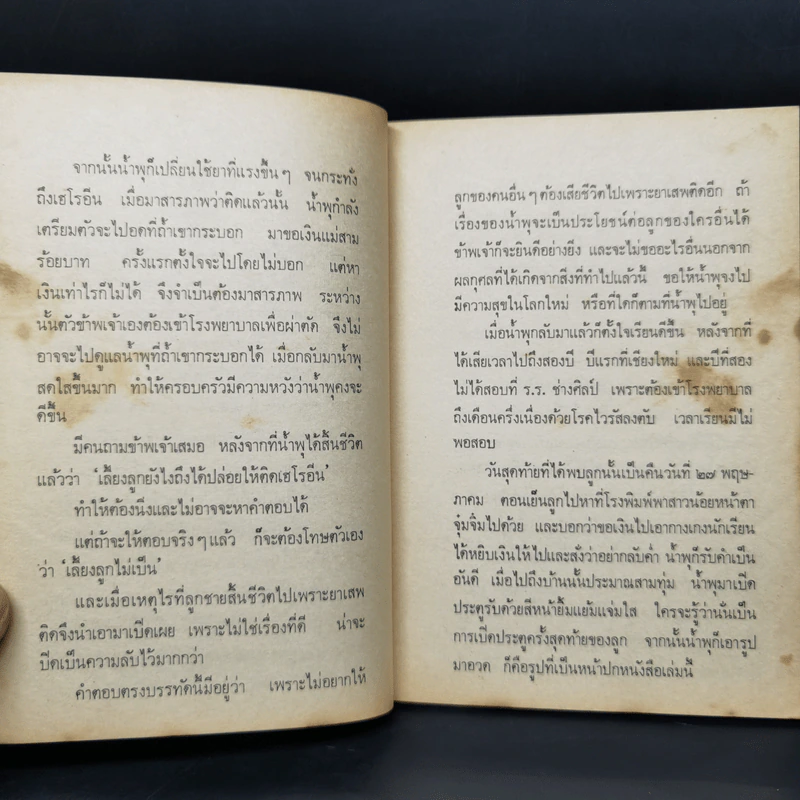 จากนั้นน้ำพุก็เปลี่ยนใช้ยาที่แรงขึ้นๆ จนกระทั่ง
ถึงเฮโรอีน เมื่อมาสารภาพว่าติดแล้วนั้น น้ำพุกำลัง
เตรียมตัวจะไปอดที่ถ้ำเขากระบอก มาขอเงินแม่สาม
ร้อยบาท ครั้งแรกตั้งใจจะไปโดยไม่บอก แต่หา
เงินเท่าไรก็ไม่ได้ จึงจำเป็นต้องมาสารภาพ ระหว่าง
นั้นตัวข้าพเจ้าเองต้องเข้าโรงพยาบาลเพื่อผ่าตัด จึงไม่
อาจจะไปดูแลน้ำพุที่ถ้ำเขากระบอกได้ เมื่อกลับมาน้ำพุ
สดใสขึ้นมาก ทำให้ครอบครัวมีความหวังว่าน้ำพุคงจะ
ดีขึ้น
มีคนถามข้าพเจ้าเสมอ หลังจากที่น้ำพุได้สิ้นชีวิต
แล้วว่า 'เลี้ยงลูกยังไงถึงได้ปล่อยให้ติดเฮโรอีน'
ทำให้ต้องนิ่งและไม่อาจจะหาคำตอบได้
แต่ถ้าจะให้ตอบจริงๆแล้ว ก็จะต้องโทษตัวเอง
ว่า 'เลี้ยงลูกไม่เป็น'
และเมื่อเหตุไรที่ลูกชายสิ้นชีวิตไปเพราะยาเสพ
ติดจึงนำเอามาเปิดเผย เพราะไม่ใช่เรื่องที่ดี น่าจะ
ปิดเป็นความลับไว้มากกว่า
คำตอบตรงบรรทัดนี้มีอยู่ว่า เพราะไม่อยากให้
ลูกของคนอื่นๆต้องเสียชีวิตไปเพราะยาเสพติดอีก ถ้า
เรื่องของน้ำพุจะเป็นประโยชน์ต่อลูกของใครอื่นได้
ข้าพเจ้าก็จะยินดีอย่างยิ่ง และจะไม่ขออะไรอื่นนอกจาก
ผลกุศลที่ได้เกิดจากสิ่งที่ทำไปแล้วนี้ ขอให้น้ำพุจงไป
มีความสุขในโลกใหม่ หรือที่ใดก็ตามที่น้ำพุไปอยู่
เมื่อน้ำพุกลับมาแล้วก็ตั้งใจเรียนดีขึ้น หลังจากที่
ได้เสียเวลาไปถึงสองปี ปีแรกที่เชียงใหม่ และปีที่สอง
ไม่ได้สอบที่ ร.ร. ช่างศิลป์ เพราะต้องเข้าโรงพยาบาล
ถึงเดือนครึ่งเนื่องด้วยโรคไวรัสลงตับ เวลาเรียนมีไม่
พอสอบ
วันสุดท้ายที่ได้พบลูกนั้นเป็นคืนวันที่ ๒๗ พฤษ-
ภาคม ตอนเย็นลูกไปหาที่โรงพิมพ์พาสาวน้อยหน้าตา
จุ๋มจิ๋มไปด้วย และบอกว่าขอเงินไปเอากางเกงนักเรียน
ได้หยิบเงินให้ไปและสั่งว่าอย่ากลับค่ำ น้ำพุก็รับคำเป็น
อันดี เมื่อไปถึงบ้านนั้นประมาณสามทุ่ม น้ำพุมาเปิด
ประตูรับด้วยสีหน้ายิ้มแย้มแจ่มใส ใครจะรู้ว่านั่นเป็น
การเปิดประตูครั้งสุดท้ายของลูก จากนั้นน้ำพุก็เอารูป
มาอวด ก็คือรูปที่เป็นหน้าปกหนังสือเล่มนี้